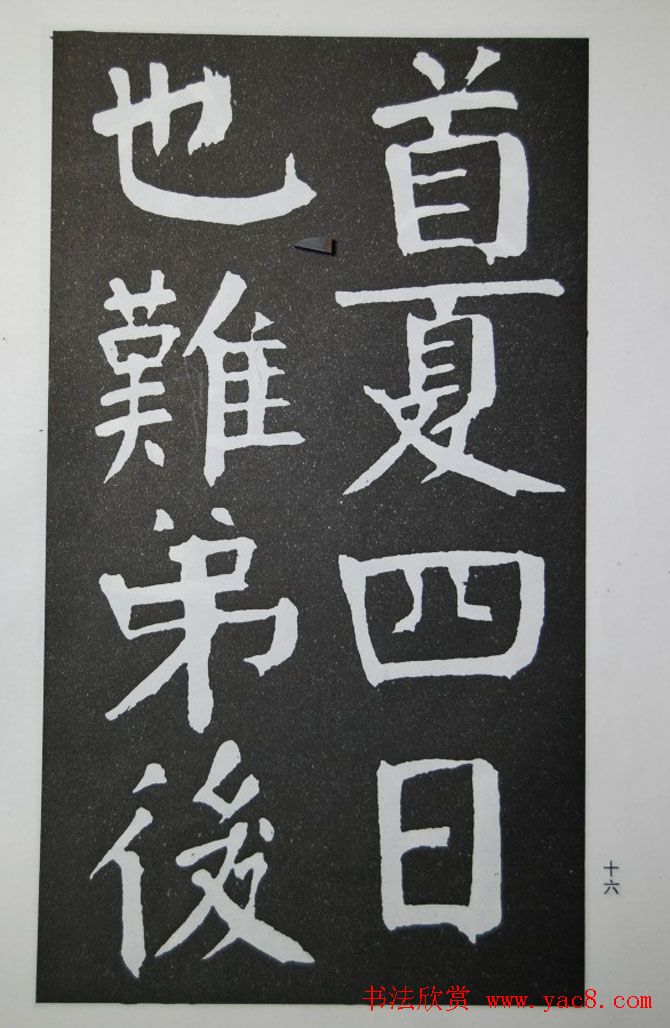 首夏四日
也難弟後
十六
书法欣赏 www.yac8.com